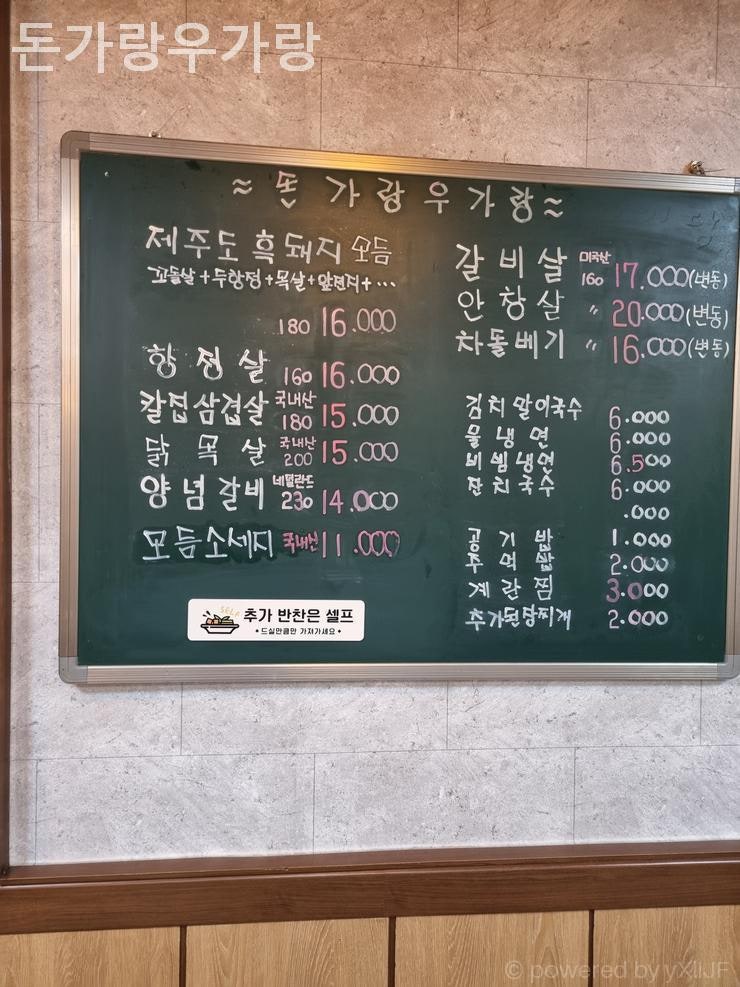 돈가랑우가랑
≈ 돈 가 랑 우 가 랑 ≈
제주도 흑돼지 모듬
꼬들살+두항정+목살+앞전지+...
180 16.000
항 정 살 160 16.000
칼집삼겹살 국내산 180 15.000
닭 목 살 국내산 200 15.000
양 념 갈 비 네덜란드 230 14.000
모듬소세지 국내산 11.000
SELF
추가 반찬은 셀프
• 드실만큼만 가져가세요 •
갈 비 살 미국산 160 17.000(변동)
안 창 살 〃 20.000(변동)
차돌베기 〃 16.000(변동)
김치말이국수 6.000
물 냉 면 6.000
비빔냉면 6.500
잔치국수 6.000
.000
공 기 밥 1.000
주 먹 밥 2.000
계 란 찜 3.000
추가된장찌개 2.000
© powered by yXIIJF